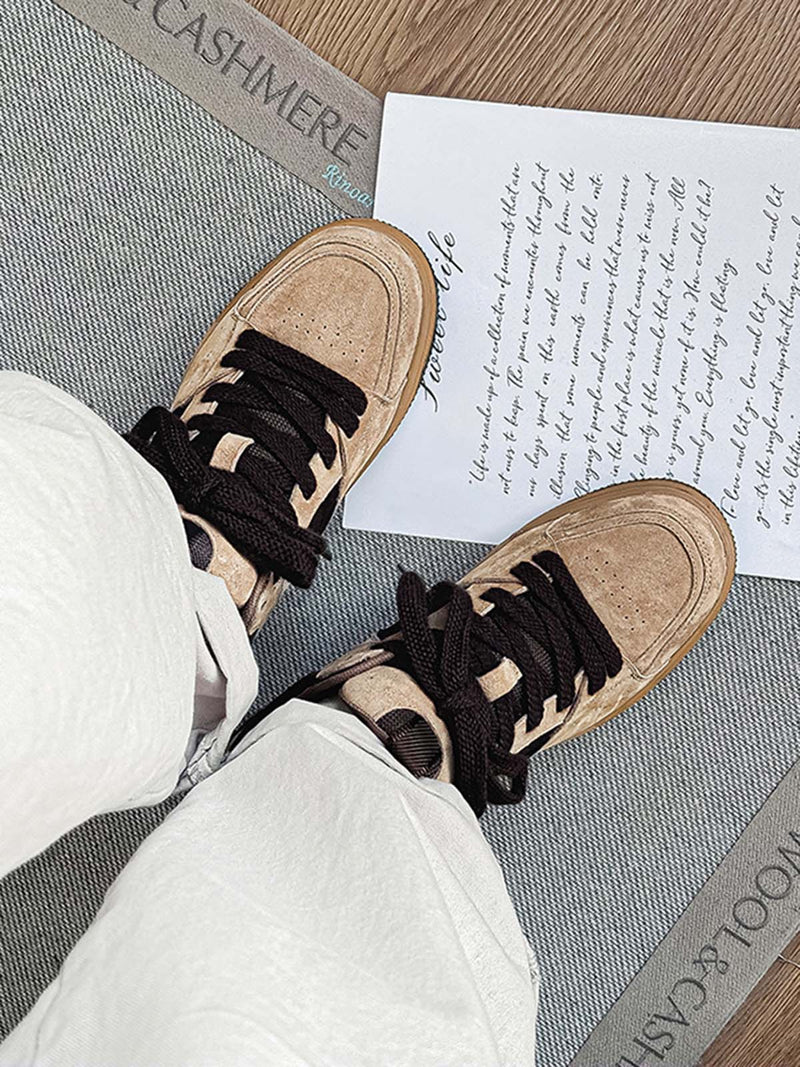 & CASHMERE
life
"Life is made up of a collection of moments that are
not ours to keep. The pain we encounter throughout
our days spent on this earth comes from the
illusion that some moments can be held onto.
Clinging to people and experiences that were never
in the first place is what causes us to miss out
beauty of the miracle that is the now. All
is yours, yet none of it is. How could it be?
around you. Everything is fleeting.
To love and let go, love and let go, love and let
go...it's the single most important thing we
in this lifetime."
WOOL & CASH